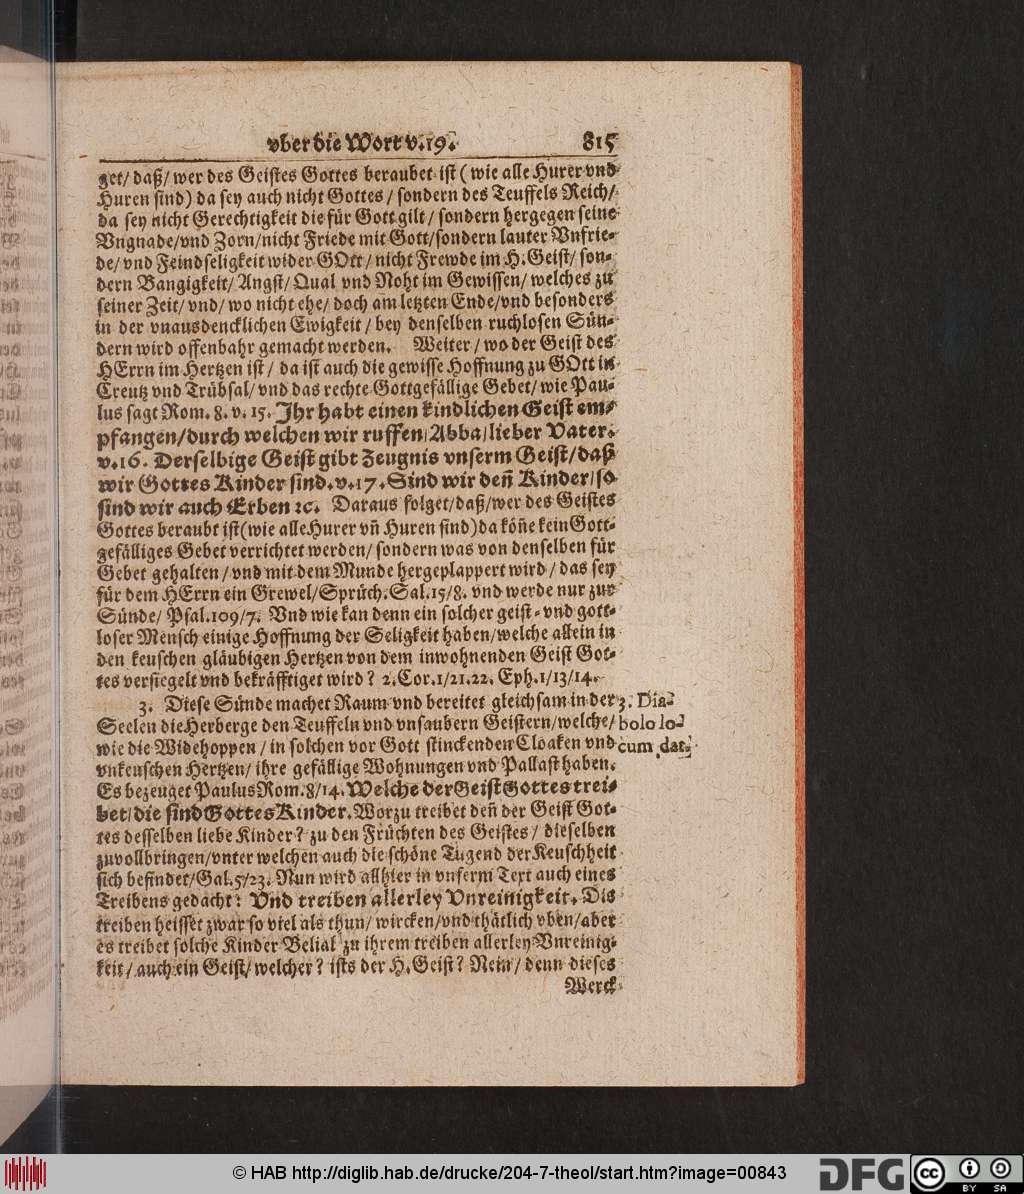 vber die Wort v.19. 815
get/ daß/ wer des Geistes Gottes beraubet ist ( wie alle Hurer vnd
Huren sind) da sey auch nicht Gottes / sondern des Teuffels Reich/
da sey nicht Gerechtigkeit die für Gott gilt / sondern hergegen seine
Vngnade/vnd Zorn/nicht Friede mit Gott/sondern lauter Vnfrie-
de/ vnd Feindseligkeit wider GOtt / nicht Frewde im H. Geist/ son-
dern Bangigkeit/ Angst/ Qual vnd Noht im Gewissen/ welches zu
seiner Zeit/ vnd/ wo nicht ehe/ doch am letzten Ende/vnd besonders
in der vnausdencklichen Ewigkeit / bey denselben ruchlosen Sün-
dern wird offenbahr gemacht werden. Weiter / wo der Geist des
HErrn im Hertzen ist / da ist auch die gewisse Hoffnung zu GOtt in
Creutz vnd Trübsal/ vnd das rechte Gottgefällige Gebet/ wie Pau-
lus sagt Rom. 8. v. 15. Jhr habt einen kindlichen Geist em-
pfangen/durch welchen wir ruffen/Abba/lieber Vater.
v.16. Derselbige Geist gibt Zeugnis vnserm Geist/daß
wir Gottes Kinder sind.v.17.Sind wir den̅ Kinder/so
sind wir auch Erben ꝛc. Daraus folget/daß/wer des Geistes
Gottes beraubt ist(wie alle Hurer vn̅ Huren sind)da kön̅e kein Gott-
gefälliges Gebet verrichtet werden/ sondern was von denselben für
Gebet gehalten / vnd mit dem Munde hergeplappert wird / das sey
für dem HErrn ein Grewel/Sprüch.Sal.15/8. vnd werde nur zur
Sünde/ Psal.109/7. Vnd wie kan denn ein solcher geist- vnd gott-
loser Mensch einige Hoffnung der Seligkeit haben/welche allein in
den keuschen gläubigen Hertzen von dem inwohnenden Geist Got-
tes versiegelt vnd bekräfftiget wird? 2.Cor.1/21.22. Eph.1/13/14.
3. Diese Sünde machet Raum vnd bereitet gleichsam in der
Seelen die Herberge den Teuffeln vnd vnsaubern Geistern/welche/
wie die Widehoppen / in solchen vor Gott stinckenden Cloaken vnd
vnkeuschen Hertzen/ ihre gefällige Wohnungen vnd Pallast haben.
Es bezeuget Paulus Rom. 8/14. Welche der Geist Gottes trei-
bet/die sind Gottes Kinder. Worzu treibet den̅ der Geist Got-
tes desselben liebe Kinder? zu den Früchten des Geistes / dieselben
zuvollbringen/vnter welchen auch die schöne Tugend der Keuschheit
sich befindet/Gal.5/23. Nun wird allhier in vnserm Text auch eines
Treibens gedacht: Vnd treiben allerley Vnreinigkeit. Dis
treiben heisset zwar so viel als thun/ wircken/vnd thätlich vben/aber
es treibet solche Kinder Belial zu ihrem treiben allerley Vnreinig-
keit/ auch ein Geist/ welcher? ists der H. Geist? Nein/ denn dieses
Werck
3. Dia-
bolo lo-
cum dat.
© HAB http://diglib.hab.de/drucke/204-7-theol/start.htm?image=00843
DFG
cc BY SA